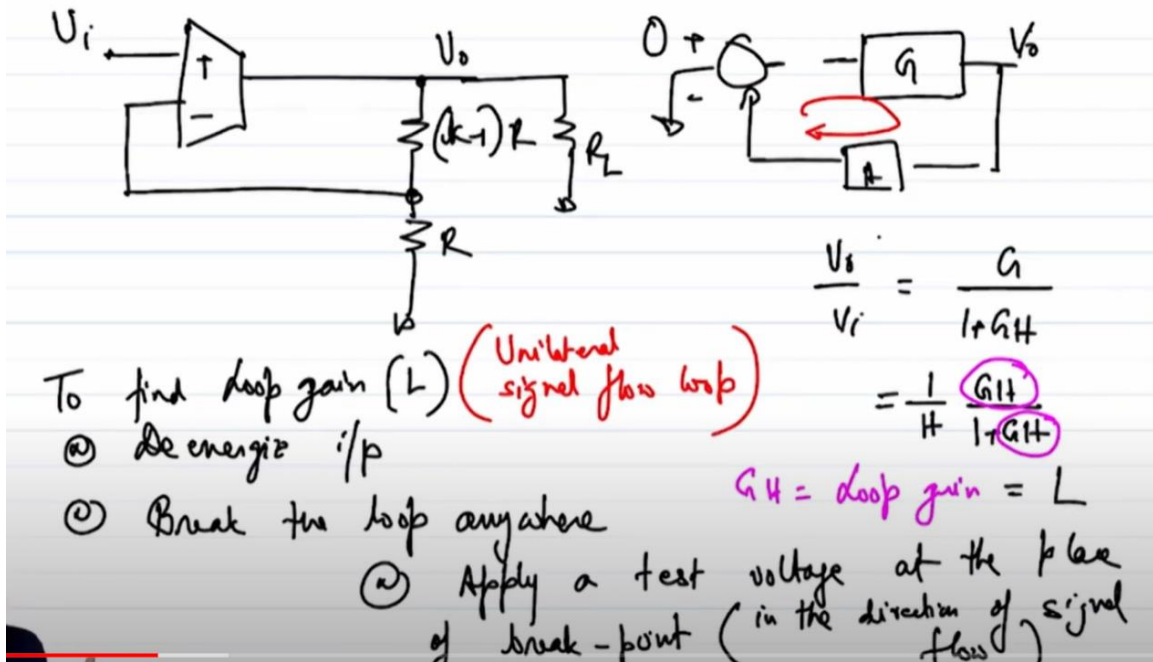 Vi
+
−
Vo
(k-1)R
RL
R
0 +
-
G
Vo
Vo/Vi = G/1+GH
= 1/H GH/1+GH
GH = Loop gain = L
To find Loop gain (L) (Unilateral
signal flow loop)
De energize i/p
Break the loop anywhere
Apply a test voltage at the place
of break-point (in the direction of signal
flow)